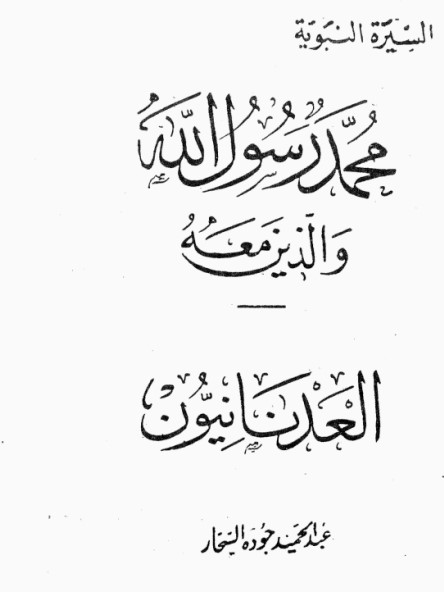 السِّيرَة النَّبَوِيَّة
مُحَمَّدٌ رَسُولُ اللهِ
وَالَّذِينَ مَعَهُ
العَدْنَانِيُّون
عبد الحميد جوده السحار